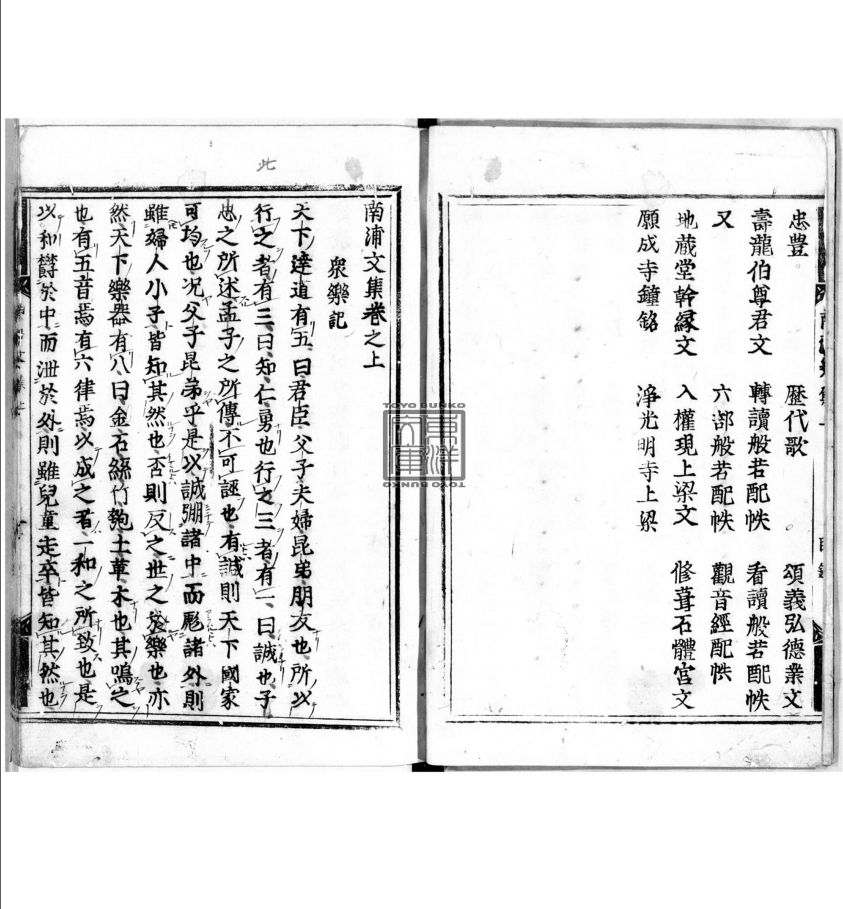 忠豊　歷代歌　頌義弘德業文
壽龍伯尊君文　轉讀般若配帙　看讀般若配帙
又　六部般若配帙　觀音經配帙
地蔵堂幹縁文　入權現上梁文　修葺石體宮文
願成寺鐘銘　淨光明寺上梁
此
南浦文集卷之上
衆樂記
天下達道有五曰君臣父子夫婦昆弟朋友也所以
行之者有三曰知仁勇也行之三者有一曰誠也子
思之所述孟子之所傳不可誣也有誠則天下國家
可均也况父子昆弟乎是以誠弸諸中而彪諸外則
雖婦人小子皆知其然也否則反之世之於樂也亦
然天下樂器有八曰金石絲竹匏土革木也其鳴之
也有五音焉有六律焉以成之者一和之所致也是
以和欝於中而泄於外則雖兒童走卒皆知其然也
TOYO BUNKO
東洋文庫
TOYO BUNKO